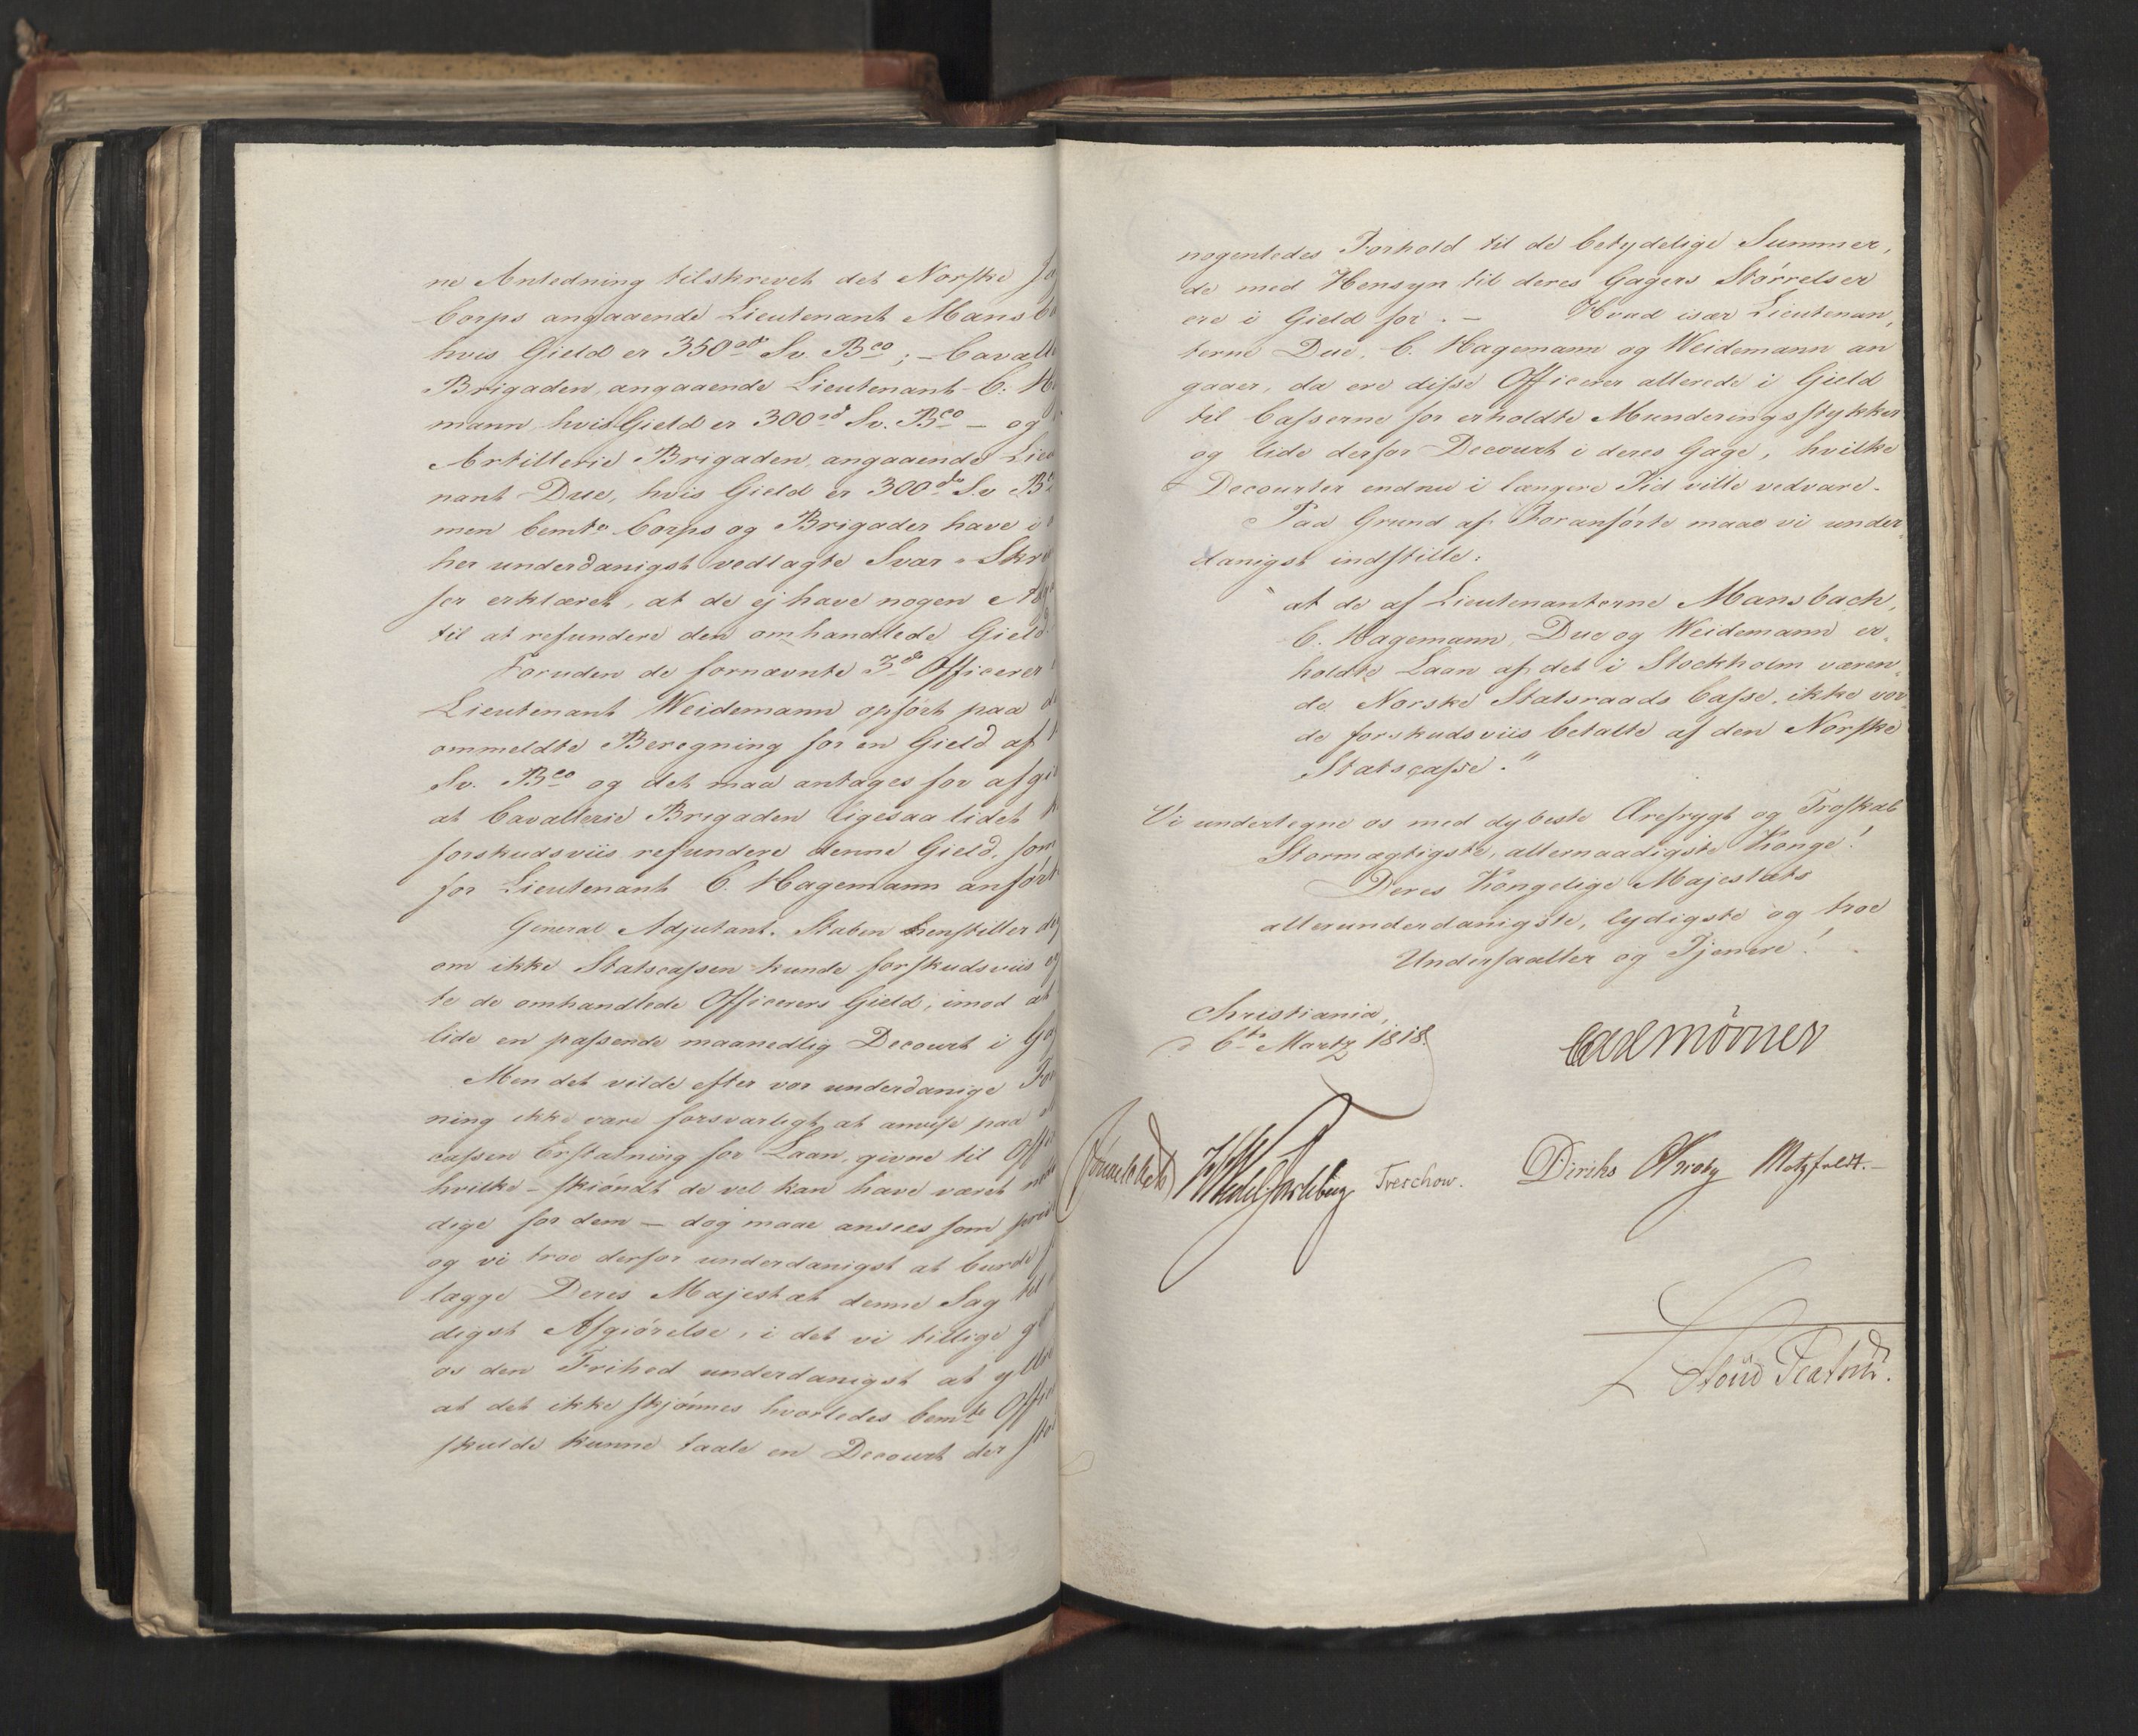 ne Anledning tilskrevet det Norske
Corps angaaende Lieutenant Mansb
hvis Gield er 350 Sv. Bco; - Cavall
Brigaden, angaaende Lieutenant C: H
mann hvis Gield er 300 Sv. Bco - og
Artillerie Brigaden, angaaende Lieu
nant Due, hvis Gield er 300 Sv Bco
men bemte Corps og Brigader have i
her underdanigst vedlagte Svar-Skr
ser erklæret, at de ej have nogen
til at refundere den omhandlede Gield.
Foruden de fornævnte 3de Officerer
Lieutenant Weidemann opført paa d
ommeldte Beregning for en Gield af
Sv. Bco og det maa antages for afgi
at Cavallerie Brigaden ligesaa lidet k
forskudsviis refundere denne Gield, som
for Lieutenant C. Hagemann anført
General Adjutant-Staben henstiller
om ikke Statscassen kunde forskudsviis
te de omhandlede Officerers Gield, imod at
lide en passende maanedlig Decourt i Ga
Men det vilde efter vor underdanige For
ning ikke være forsvarligt at anvise paa
cassen Erstatning for Laan, givne til Offi
hvilke - skiøndt de vel kan have været nød
dige for dem - dog maae ansees som priv
og vi troe derfor underdanigst at burde
lægge Deres Majestæt denne Sag til
digst Afgiørelse, i det vi tillige
os den Frihed underdanigst at yttre
at det ikke skjønnes hvorledes bemte Offi
skulde kunne taale en Decourt der sto
nogenledes Forhold til de betydelige Summer,
de med Hensyn til deres Gagers Størrelser
ere i Gield for. - Hvad især Lieutenan,
terne Due, C. Hagemann og Weidemann an
gaaer, da ere disse Officerer allerede i Gield
til Casserne for erholdte Munderingsstykker
og lide derfor Decourt i deres Gage, hvilke
Decourter endnu i længere Tid ville vedvare.
Paa Grund af Foranførte maae vi under,
danigst indstille:
"at de af Lieutenanterne Mansbach,
C. Hagemann, Due og Weidemann er,
holdte Laan af det i Stockholm væren,
de Norske Statsraads Casse, ikke vor,
de forskudsviis betalte af den Norske
Statscasse."
Vi undertegne os med dybeste Ærefrygt og Troskab
Stormægtigste, allernaadigste Konge!
Deres Kongelige Majestæts
allerunderdanigste, lydigste og troe
Undersaatter og Tjenere!
Christiania,
d 6te Martz 1818.
Carl Mörner
Sommerhielm HWedel Jarlsberg Treschow. Diriks CKrohg Motzfeldt. -